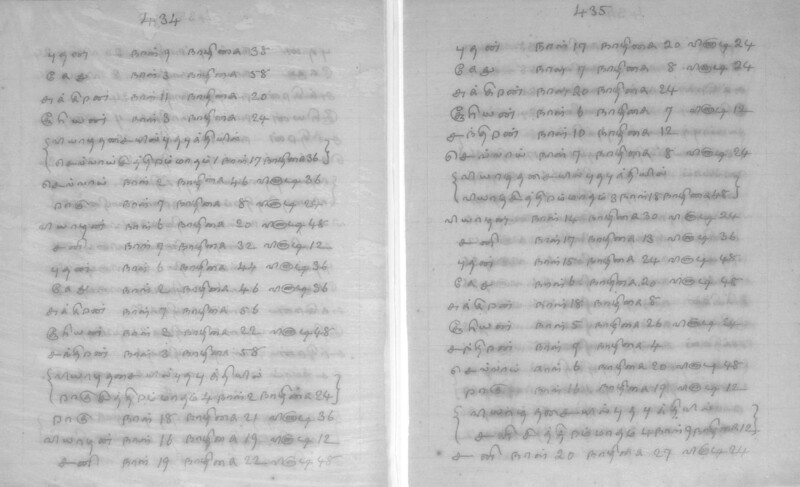 434
புதன் நாள் 9 நாழிகை 35
கேது நாள் 3 நாழிகை 58
சுக்கிரன் நாள் 11 நாழிகை 20
சூரியன் நாள் 3 நாழிகை 24
வியாழதசையில் புதபுத்தியில்
செவ்வாய் மாதம் 1 நாள் 17 நாழிகை 36
செவ்வாய் நாள் 2 நாழிகை 46 விநாடி 36
ராகு நாள் 7 நாழிகை 8 விநாடி 24
வியாழன் நாள் 6 நாழிகை 20 விநாடி 48
சனி நாள் 7 நாழிகை 32 விநாடி 12
புதன் நாள் 6 நாழிகை 44 விநாடி 36
கேது நாள் 2 நாழிகை 46 விநாடி 36
சுக்கிரன் நாள் 7 நாழிகை 56
சூரியன் நாள் 2 நாழிகை 22 விநாடி 48
சந்திரன் நாள் 3 நாழிகை 58
வியாழதசையில் புதபுத்தியில்
ராகு மாதம் 4 நாள் 2 நாழிகை 24
ராகு நாள் 18 நாழிகை 21 விநாடி 36
வியாழன் நாள் 16 நாழிகை 19 விநாடி 12
சனி நாள் 19 நாழிகை 22 விநாடி 48
435
புதன் நாள் 17 நாழிகை 20 விநாடி 24
கேது நாள் 7 நாழிகை 8 விநாடி 24
சுக்கிரன் நாள் 20 நாழிகை 24
சூரியன் நாள் 6 நாழிகை 7 விநாடி 12
சந்திரன் நாள் 10 நாழிகை 12
செவ்வாய் நாள் 7 நாழிகை 8 விநாடி 24
வியாழதசையில் புதபுத்தியில்
வியாழ மாதம் 3 நாள் 18 நாழிகை 48
வியாழன் நாள் 14 நாழிகை 30 விநாடி 24
சனி நாள் 17 நாழிகை 13 விநாடி 36
புதன் நாள் 15 நாழிகை 24 விநாடி 48
கேது நாள் 6 நாழிகை 20 விநாடி 48
சுக்கிரன் நாள் 18 நாழிகை 8
சூரியன் நாள் 5 நாழிகை 26 விநாடி 24
சந்திரன் நாள் 9 நாழிகை 4
செவ்வாய் நாள் 6 நாழிகை 20 விநாடி 48
ராகு நாள் 16 நாழிகை 19 விநாடி 12
வியாழதசையில் புதபுத்தியில்
சனி மாதம் 4 நாள் 9 நாழிகை 12
சனி நாள் 20 நாழிகை 27 விநாடி 24